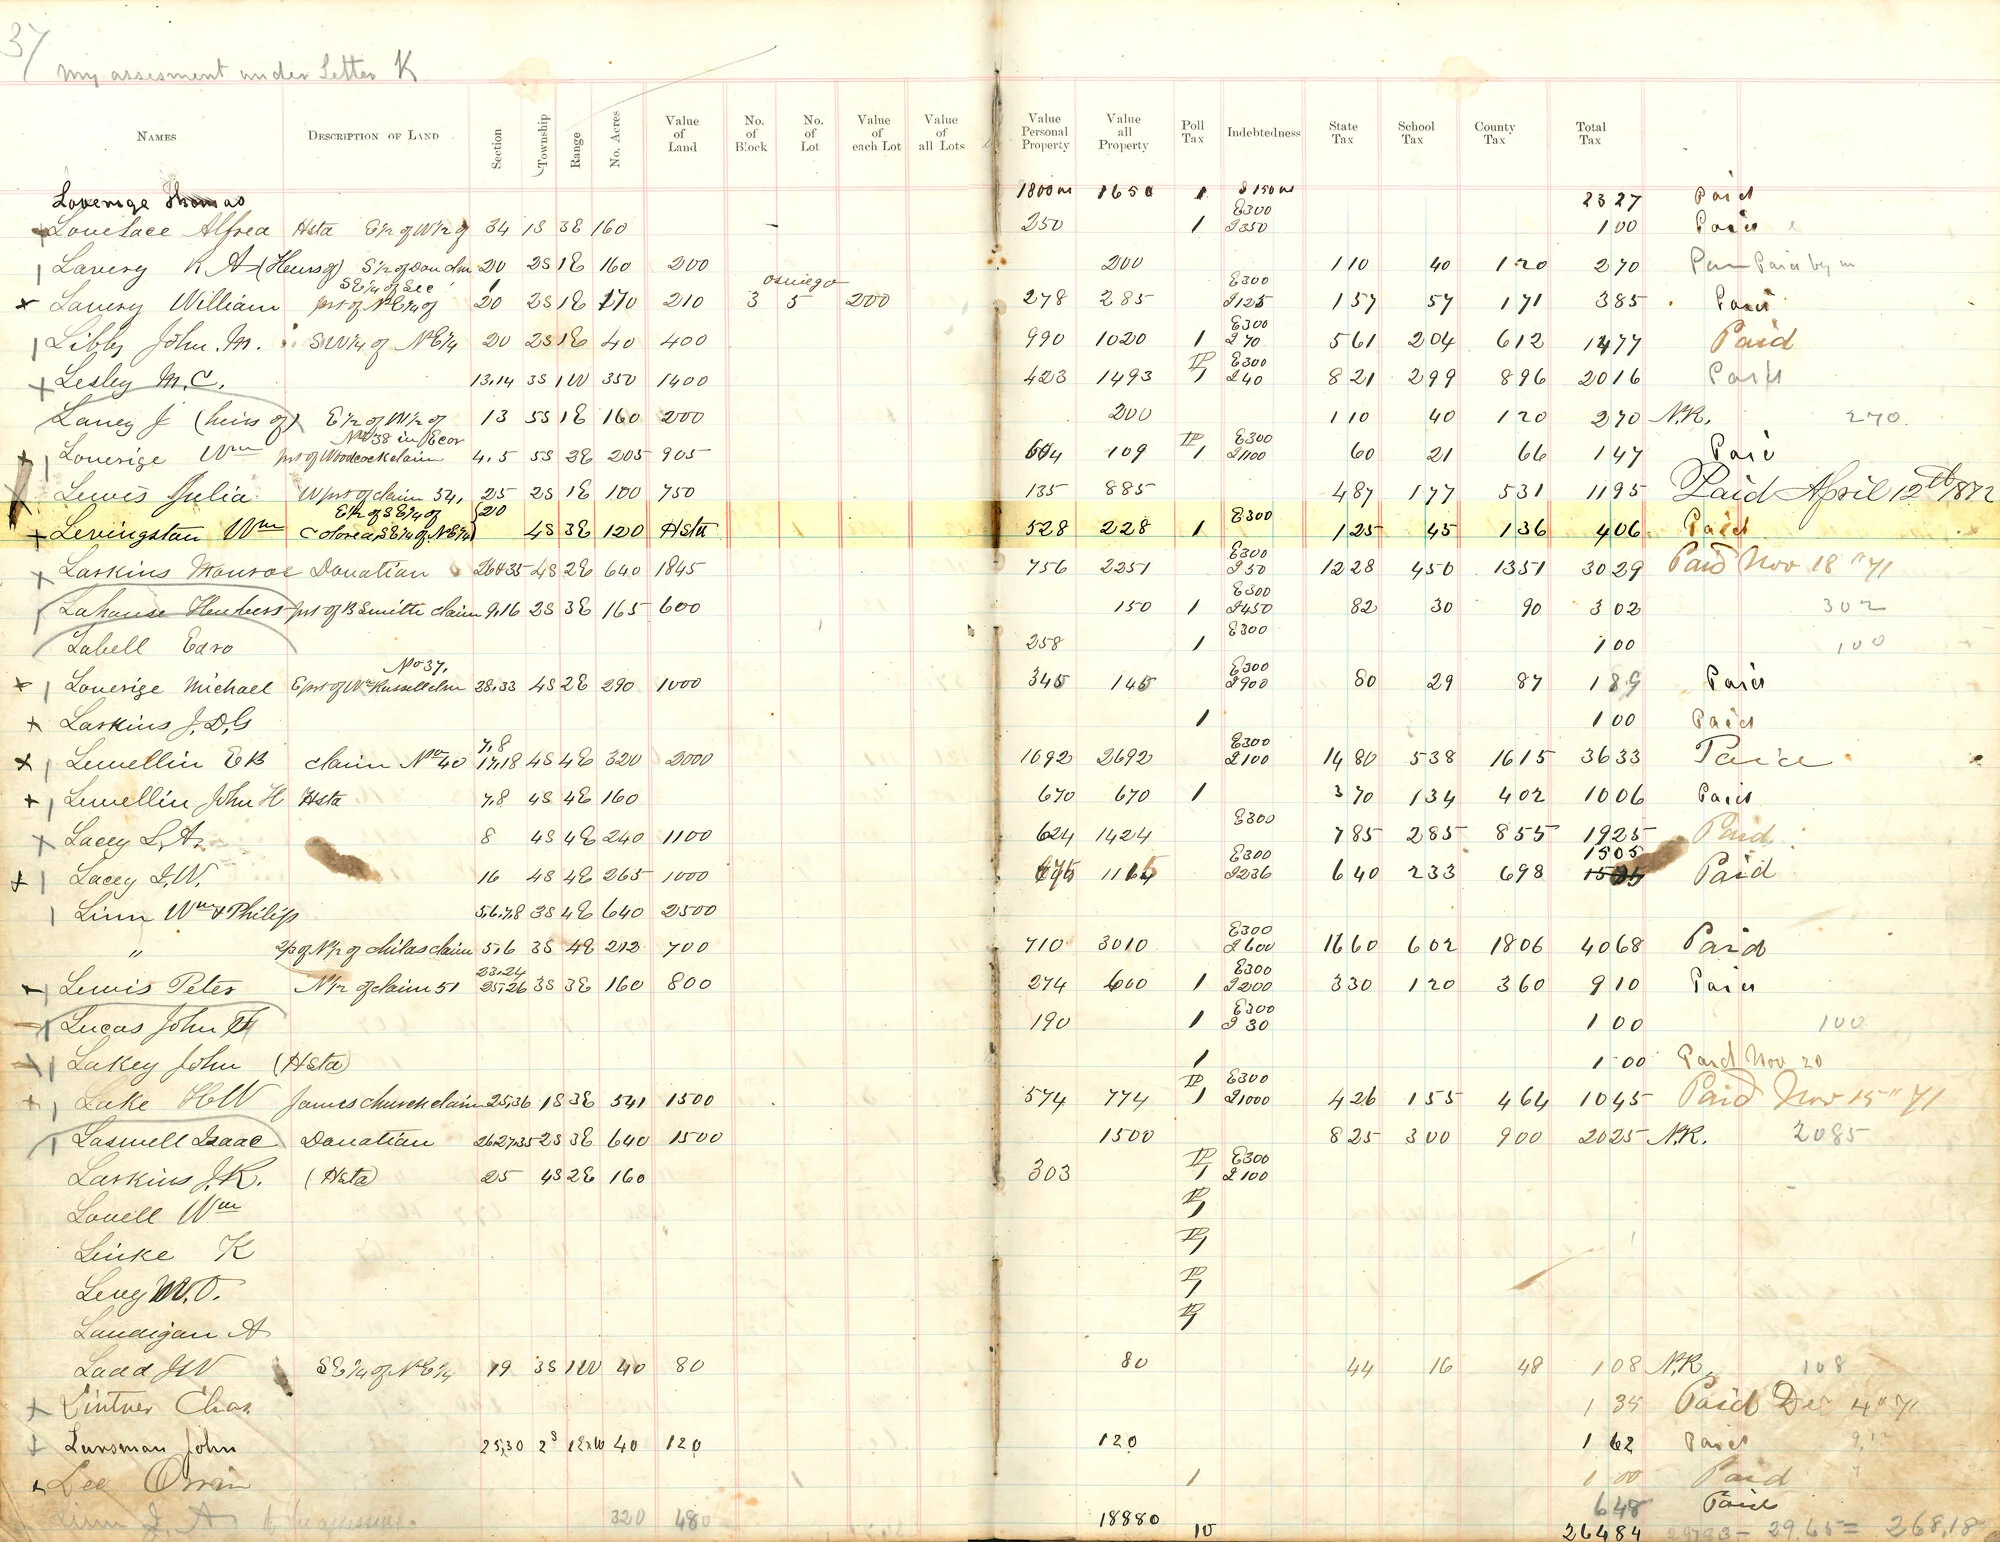 37
My assesment under Letter K
Names Description of Land Section Township Range No. Acres Value of Land No. of Block No. of Lot Value of each Lot Value of all Lots Value Personal Property Value all Property Poll Tax Indebtedness State Tax School Tax County Tax Total Tax
Loverige Thomas 1800 1650 1 I 150 23 27 Paid
Lovelace Alfred Hsta E½ of W½ of 34 1S 3E 160 250 1 E300 I350 1 00 Paid
Lavery R A (Heirs of) S½ of Don clm 20 2S 1E 160 200 200 1 10 40 1 20 2 70 Paid by
SE¼ of Sec 1 oswego
Lavery William prt of NE¼ of 20 2S 1E 170 210 3 5 200 278 285 E300 I125 1 57 57 1 71 3 85 Paid
Libby John M. SW¼ of NE¼ 20 2S 1E 40 400 990 1020 1 E300 I 70 5 61 2 04 6 12 1477 Paid
Lesley M.C. 13,14 3S 1W 350 1400 423 1493 1 E300 I40 8 21 2 99 8 96 20 16 Paid
Laney J (heirs of) E½ of W½ of 13 5S 1E 160 200 200 1 10 40 1 20 2 70 N.R. 270
No 38 in Ecor
Loverige Wm prt of Woodcock claim 4.5 5S 3E 205 905 604 109 1 E300 I1100 60 21 66 1 47 Paid
Lewis Julia W prt of claim 52, 25 2S 1E 100 750 135 885 4 87 1 77 5 31 11 95 Paid April 12th 1872
E½ of SE¼ of 20
Levingston Wm Colored SE¼ of NE¼ 4S 3E 120 Hsta 528 228 1 E300 1 25 45 1 36 4 06 Paid
Larkins Monroe Donation 26&35 4S 2E 640 1845 756 2251 E300 I50 12 28 4 50 13 51 30 29 Paid Nov 18th 71
Lahouse Henbers prt of B Smith claim 9,16 2S 3E 165 600 150 1 E300 I450 82 30 90 3 02 302
Labell Edro 258 1 E300 1 00 100
No 37.
Loverige Michael E prt of Wm Russell clm 28,33 4S 2E 290 1000 345 145 E300 I900 80 29 87 1 89 Paid
Larkins J.D.G 1 1 00 Paid
7,8
Lewellin E B claim No 40 17,18 4S 4E 320 2000 1092 2692 E300 I100 14 80 5 38 16 15 36 33 Paid
Lewellin John H Hsta 7,8 4S 4E 160 670 670 1 3 70 1 34 4 02 10 06 Paid
Lacey L.A. 8 4S 4E 240 1100 624 1424 E300 7 85 2 85 8 55 19 25 Paid
1505
Lacey I.W. 16 4S 4E 265 1000 1165 E300 I236 6 40 2 33 6 98 Paid
Linn Wm & Philip 5,6,7,8 3S 4E 640 2500
" of N½ of childs claim 5,6 3S 4E 212 700 710 3010 E300 I600 16 60 6 02 18 06 40 68 Paid
23,24
Lewis Peter N½ of claim 51 25,26 3S 3E 160 800 274 600 1 E300 I200 3 30 1 20 3 60 9 10 Paid
Lucas John F 190 1 E300 I 30 1 00 100
Lakey John (Hsta) 1 1 00 Paid Nov 20
Lake H W James Church claim 25,36 1S 3E 541 1500 574 774 1 E300 I1000 4 26 1 55 4 64 10 45 Paid Nov 15th 71
Laswell Isaac Donation 26,27,35 2S 3E 640 1500 1500 8 25 3 00 9 00 20 25 N.R. 2085
Larkins J.K. (Hsta) 25 4S 2E 160 303 1 E300 I100
Lovell Wm 1
Linke K 1
Levy W.O. 1
Landigan A 1
Ladd J W SE¼ of NE¼ 19 3S 1W 40 80 80 44 16 48 1 08 N.R. 108
Lintner Chas. 1 35 Paid Dec 4th 71
Lansman John 25,30 2S 1E&W 40 120 120 1 62 Paid
Lee Orrin 1 1 00 Paid
Linn J. A. 320 480 648 Paid
18880 10 26484 29783 - 29.65 = 268.18